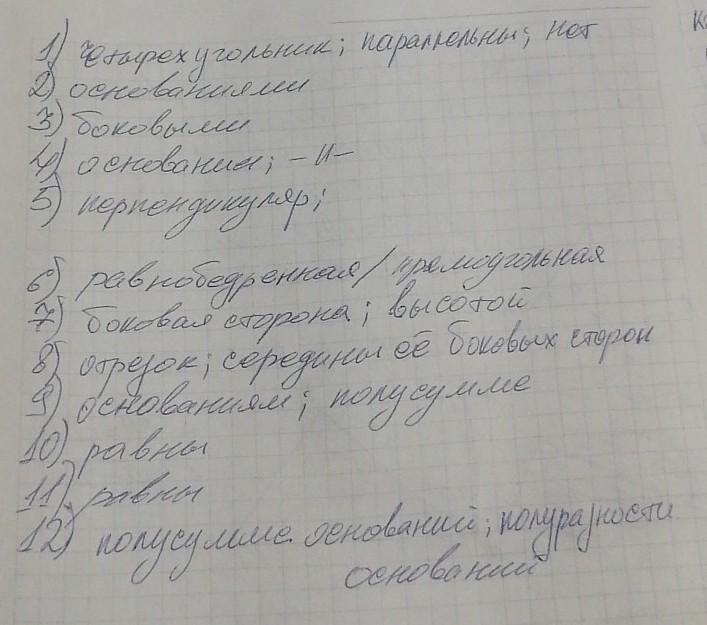 1) четырехугольник; параллельны; нет
2) основаниями
3) боковыми
4) основания; -и-
5) перпендикуляр;
6) равнобедренная/прямоугольная
7) боковая сторона; высотой
8) отрезок; середины её боковых сторон
9) основаниям; полусумме
10) равны
11) равны
12) полусумме оснований; полуразности
оснований